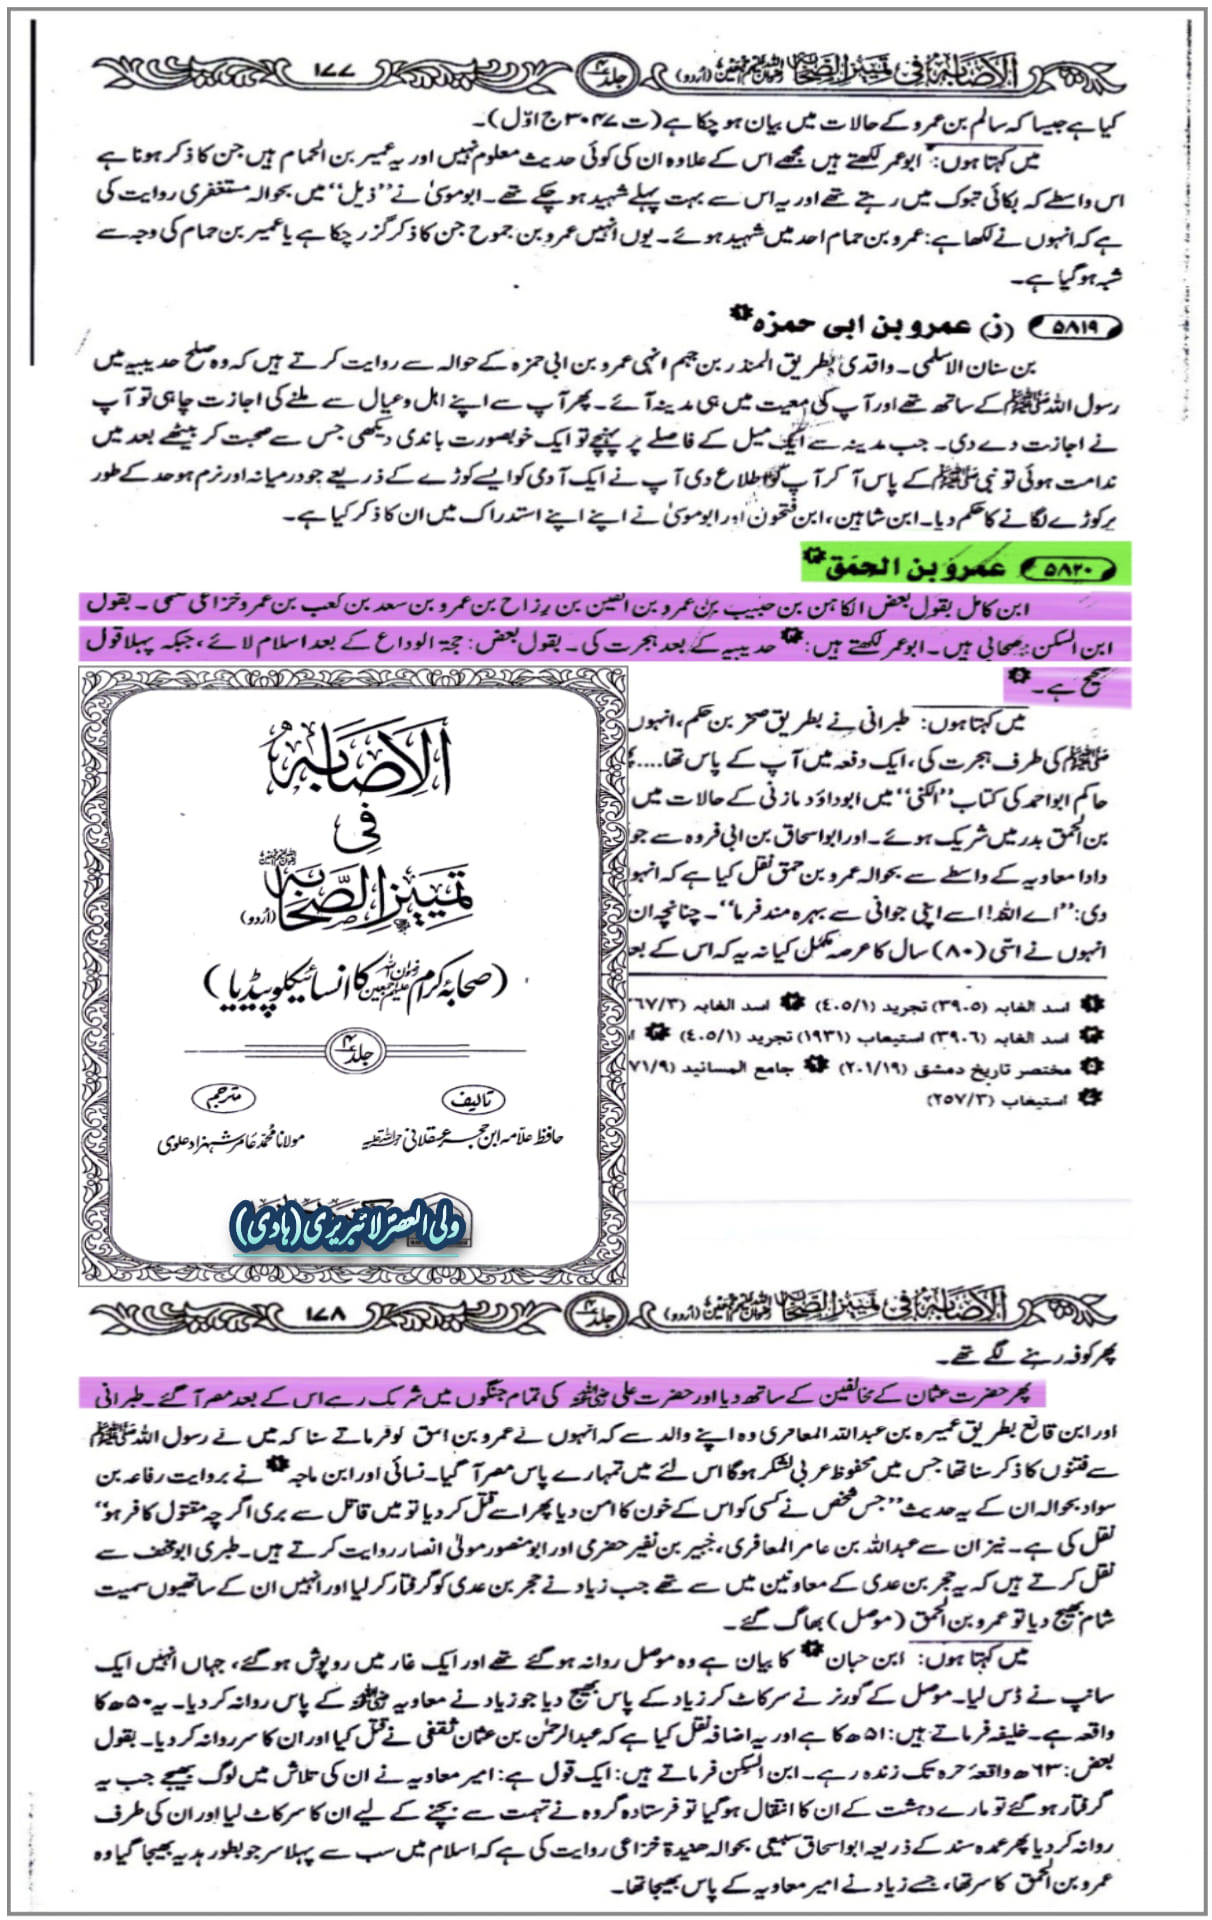 الاصابہ فی تمییز الصحابہ (اُردو) جلد ۴ ۱۷۷
کیا ہے جیسا کہ سالم بن عمرو کے حالات میں بیان ہو چکا ہے (ت ۳۰۴۷ ج اوّل)۔
میں کہتا ہوں: ابوعمر لکھتے ہیں مجھے اس کے علاوہ ان کی کوئی حدیث معلوم نہیں اور یہ عمیر بن الحمام ہیں جن کا ذکر ہونا ہے
اس واسطے کہ بکائی تبوک میں رہتے تھے اور یہ اس سے بہت پہلے شہید ہو چکے تھے۔ ابوموسیٰ نے ’’ذیل‘‘ میں بحوالہ مستغفری روایت کی
ہے کہ انہوں نے لکھا ہے: عمرو بن حمام احد میں شہید ہوئے۔ یوں انہیں عمرو بن جموح جن کا ذکر گزر چکا ہے یا عمیر بن حمام کی وجہ سے
شبہ ہو گیا ہے۔
۵۸۱۹ (ز) عمرو بن ابی حمزہ ۱
بن سنان الاسلمی۔ واقدی بطریق المنذر بن جہم انہی عمرو بن ابی حمزہ کے حوالہ سے روایت کرتے ہیں کہ وہ صلح حدیبیہ میں
رسول اللہ ﷺ کے ساتھ تھے اور آپ کی معیت میں ہی مدینہ آئے۔ پھر آپ سے اپنے اہل وعیال سے ملنے کی اجازت چاہی تو آپ
نے اجازت دے دی۔ جب مدینہ سے ایک میل کے فاصلے پر پہنچے تو ایک خوبصورت باندی دیکھی جس سے صحبت کر بیٹھے بعد میں
ندامت ہوئی تو نبی ﷺ کے پاس آ کر آپ کو اطلاع دی آپ نے ایک آدمی کو ایسے کوڑے کے ذریعے جو درمیانہ اور نرم ہو حد کے طور
پر کوڑے لگانے کا حکم دیا۔ ابن شاہین، ابن فتحون اور ابوموسیٰ نے اپنے اپنے استدراک میں ان کا ذکر کیا ہے۔
۵۸۲۰ عمرو بن الحمق ۳
ابن کامل بقول بعض الکاہن بن حبیب بن عمرو بن القین بن رزاح بن عمرو بن سعد بن کعب بن عمرو خزاعی کعبی۔ بقول
ابن السکن صحابی ہیں۔ ابوعمر لکھتے ہیں: ۴ حدیبیہ کے بعد ہجرت کی۔ بقول بعض: حجۃ الوداع کے بعد اسلام لائے، جبکہ پہلا قول
صحیح ہے۔ ۵
میں کہتا ہوں: طبرانی نے بطریق صخر بن حکم، انہوں
ﷺ کی طرف ہجرت کی، ایک دفعہ میں آپ کے پاس تھا....
حاکم ابواحمد کی کتاب ’’الکنیٰ‘‘ میں ابوداؤد مازنی کے حالات میں
بن الحمق بدر میں شریک ہوئے۔ اور ابواسحاق بن ابی فروہ سے جو
دادا معاویہ کے واسطے سے بحوالہ عمرو بن حمق نقل کیا ہے کہ انہو
دی: ’’اے اللہ! اسے اپنی جوانی سے بہرہ مند فرما‘‘۔ چنانچہ ان
انہوں نے اسّی (۸۰) سال کا عرصہ مکمل کیا نہ یہ کہ اس کے بعد
۱ اسد الغابہ (۳۹۰۵) تجرید (۴۰۵/۱) ۲ اسد الغابہ (۳/۶۷
۳ اسد الغابہ (۳۹۰۶) استیعاب (۱۹۳۱) تجرید (۴۰۵/۱) ۴
۵ مختصر تاریخ دمشق (۲۰۱/۱۹) ۶ جامع المسانید (۹/۷۱
۷ استیعاب (۲۵۷/۳)
الاصابہ
فی
تمییز الصحابہ (اُردو)
(صحابہ کرام رضوان اللہ علیہم اجمعین کا انسائیکلوپیڈیا)
جلد ۴
تالیف مترجم
حافظ علامہ ابن حجر عسقلانی رحمۃ اللہ علیہ مولانا محمد عامر شہزاد علوی
ولی العصر لائبریری (ہادی)
الاصابہ فی تمییز الصحابہ (اُردو) جلد ۴ ۱۷۸
پھر کوفہ رہنے لگے تھے۔
پھر حضرت عثمان کے مخالفین کے ساتھ دیا اور حضرت علی رضی اللہ عنہ کی تمام جنگوں میں شریک رہے اس کے بعد مصر آ گئے۔ طبرانی
اور ابن قانع بطریق عمیرہ بن عبداللہ المعافری وہ اپنے والد سے کہ انہوں نے عمرو بن الحمق کو فرماتے سنا کہ میں نے رسول اللہ ﷺ
سے فتنوں کا ذکر سنا تھا جس میں محفوظ عربی لشکر ہوگا اس لئے میں تمہارے پاس مصر آ گیا۔ نسائی اور ابن ماجہ ۱ نے بروایت رفاعہ بن
سواد بحوالہ ان کے یہ حدیث ’’جس شخص نے کسی کو اس کے خون کا امن دیا پھر اسے قتل کر دیا تو میں قاتل سے بری اگرچہ مقتول کافر ہو‘‘
نقل کی ہے۔ نیز ان سے عبداللہ بن عامر المعافری، جبیر بن نفیر حضری اور ابومنصور مولیٰ انصار روایت کرتے ہیں۔ طبری ابومخنف سے
نقل کرتے ہیں کہ یہ حجر بن عدی کے معاونین میں سے تھے جب زیاد نے حجر بن عدی کو گرفتار کر لیا اور انہیں ان کے ساتھیوں سمیت
شام بھیج دیا تو عمرو بن الحمق (موصل) بھاگ گئے۔
میں کہتا ہوں: ابن حبان ۲ کا بیان ہے وہ موصل روانہ ہو گئے تھے اور ایک غار میں روپوش ہو گئے، جہاں انہیں ایک
سانپ نے ڈس لیا۔ موصل کے گورنر نے سر کاٹ کر زیاد کے پاس بھیج دیا جو زیاد نے معاویہ رضی اللہ عنہ کے پاس روانہ کر دیا۔ یہ ۵۰ھ کا
واقعہ ہے۔ خلیفہ فرماتے ہیں: ۵۱ھ کا ہے اور یہ اضافہ نقل کیا ہے کہ عبدالرحمٰن بن عثمان ثقفی نے قتل کیا اور ان کا سر روانہ کر دیا۔ بقول
بعض: ۶۳ھ واقعۂ حرہ تک زندہ رہے۔ ابن السکن فرماتے ہیں: ایک قول ہے: امیر معاویہ نے ان کی تلاش میں لوگ بھیجے جب یہ
گرفتار ہو گئے تو مارے دہشت کے ان کا انتقال ہو گیا تو فرستادہ گروہ نے تہمت سے بچنے کے لیے ان کا سر کاٹ لیا اور ان کی طرف
روانہ کر دیا پھر عمدہ سند کے ذریعہ ابواسحاق سبیعی بحوالہ ھنیدۃ خزاعی روایت کی ہے کہ اسلام میں سب سے پہلا سر جو بطور ہدیہ بھیجا گیا وہ
عمرو بن الحمق کا سر تھا، جسے زیاد نے امیر معاویہ کے پاس بھیجا تھا۔